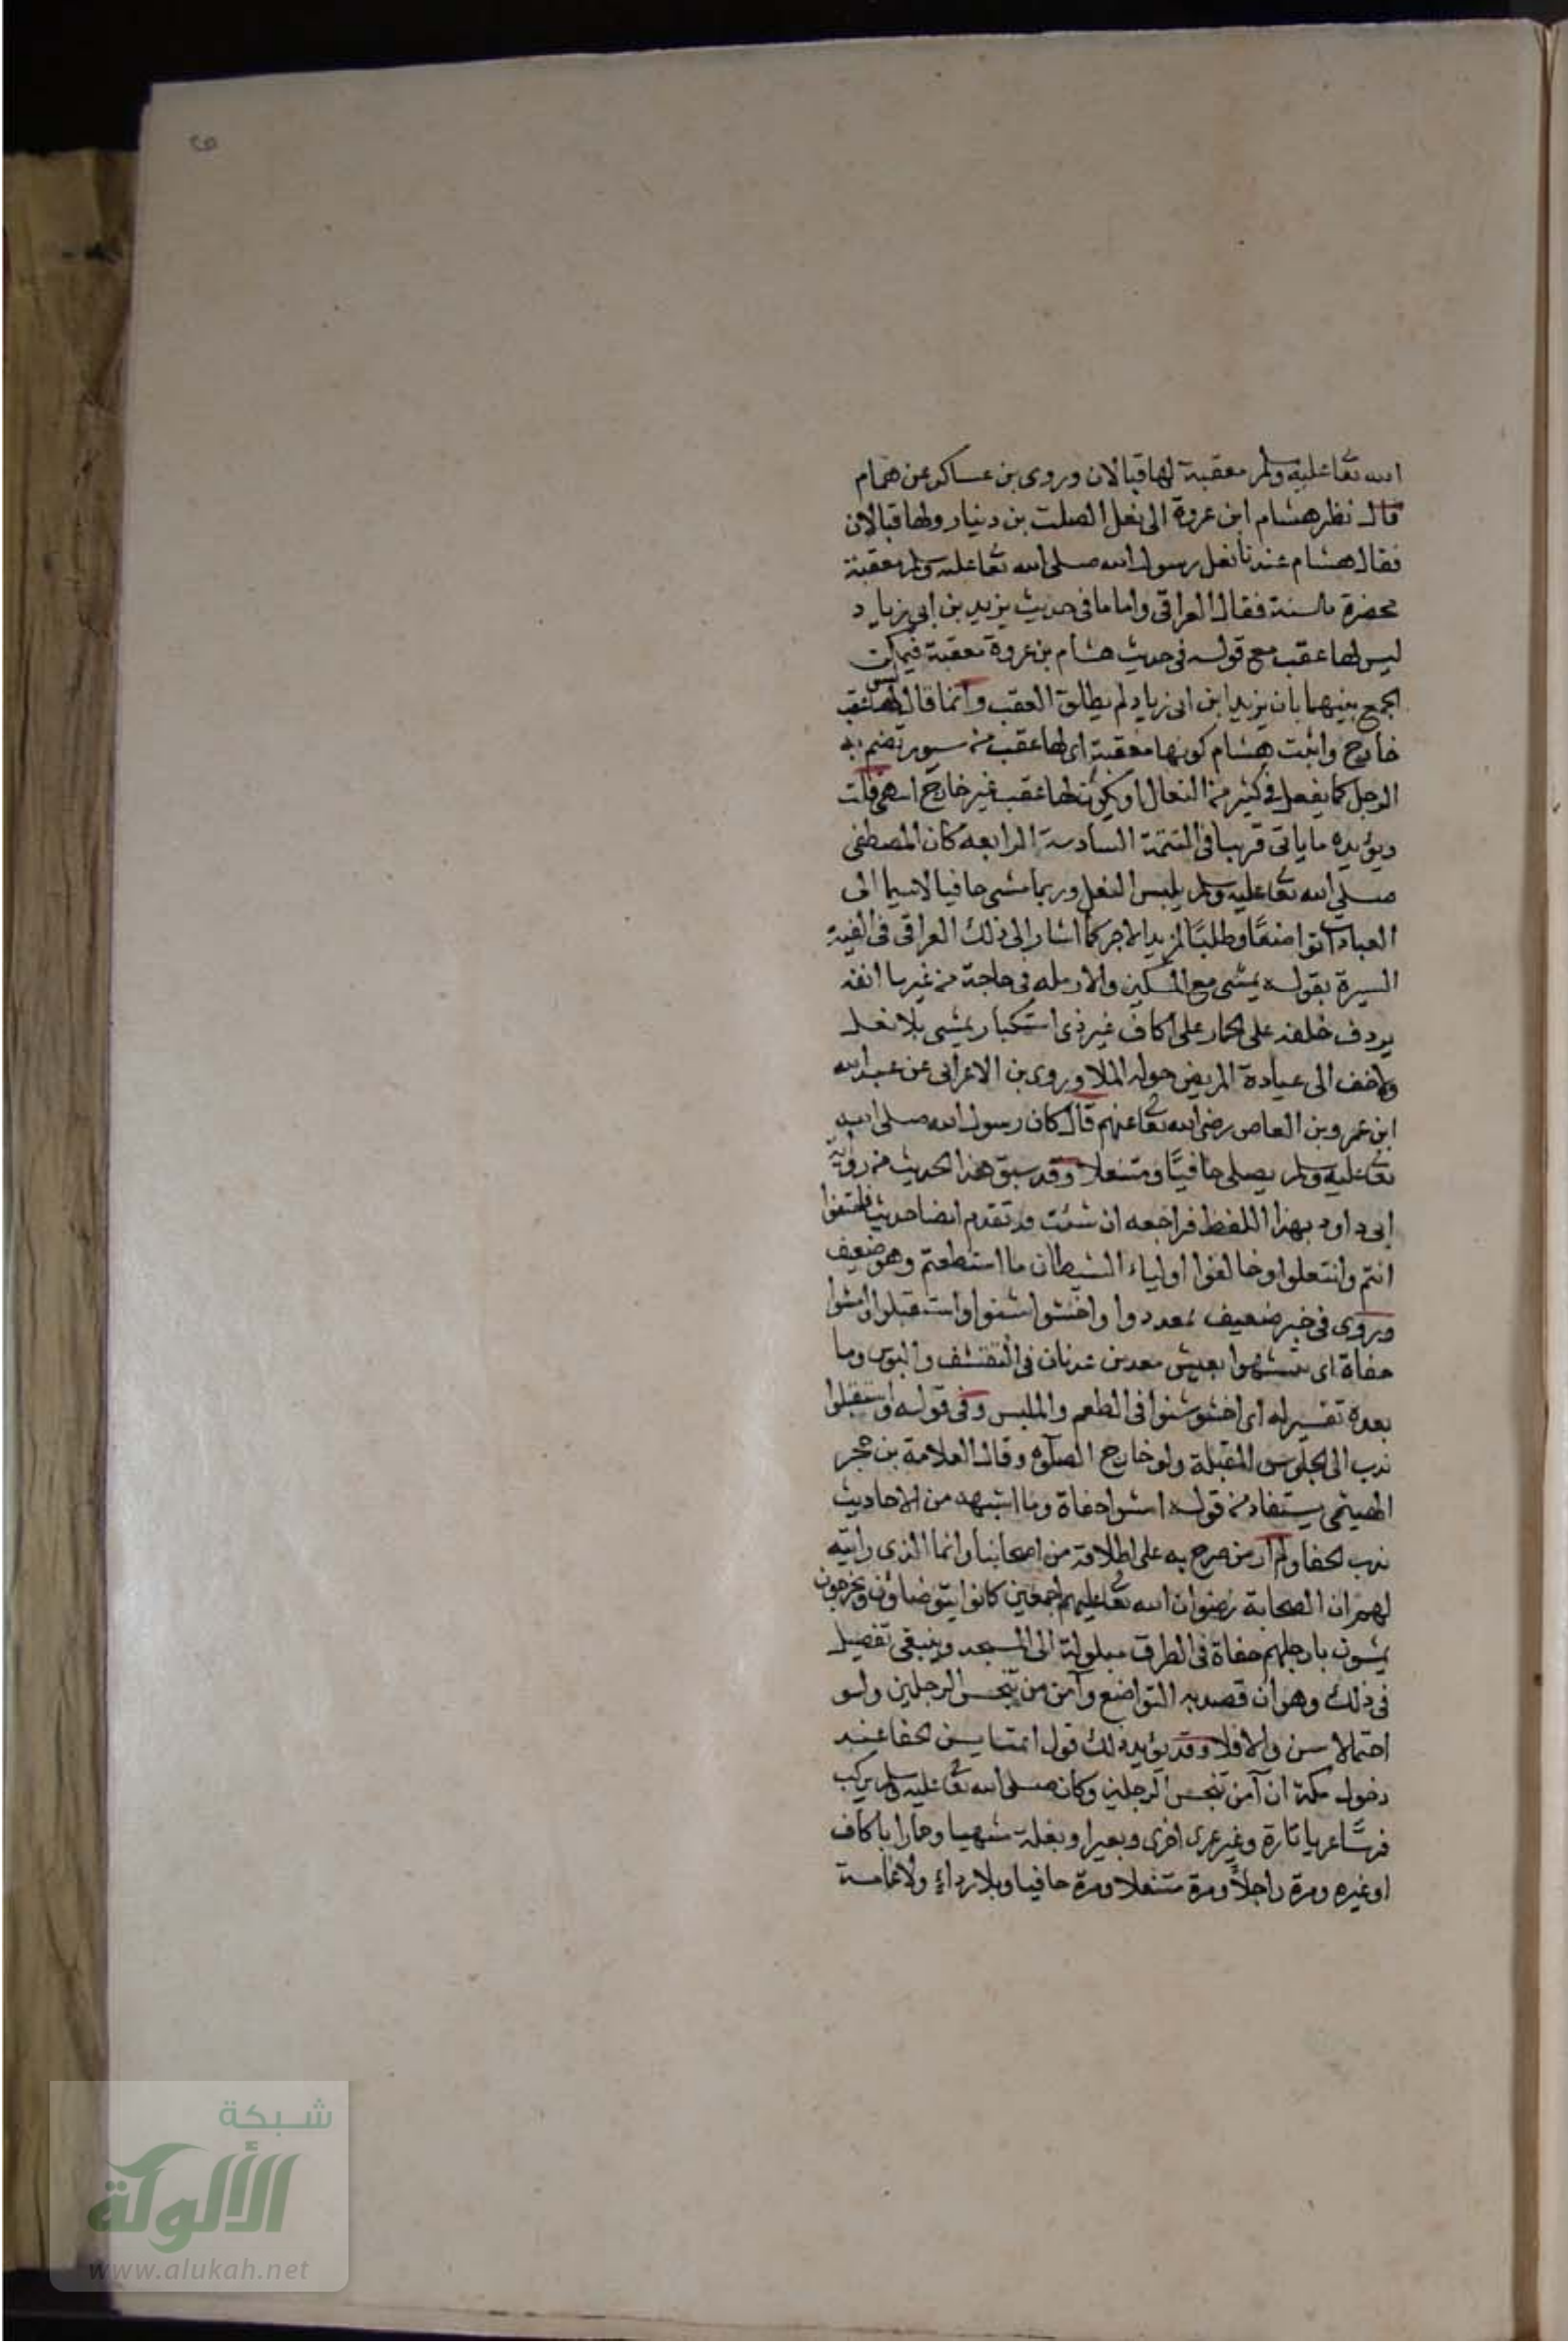 الله تعا عليه وسلم معقبة لها قبالان وروى بن عساكر عن همام
قال نظر هشام ابن عروة الى نعل الصلت بن دنيار ولها قبالان
فقال هشام عندنا نعل رسول الله صلى الله تعا عليه وسلم معقبة
مخصرة ملسنة فقال العراقى واما ما فى حديث يزيد بن ابى زياد
ليس لها عقب مع قوله فى حديث هشام بن عروة معقبة فيمكن
الجمع بينهما بان يزيد ابن ابى زياد لم يطلق العقب وانما قال ليس لها عقب
خارج واثبت هشام كونها معقبة اى لها عقب من سيور تضم به
الرجل كما يفعل فى كثير من النعال او يكون لها عقب غير خارج انتهى قلت
ويؤيده ما ياتى قريبا فى التتمة السادسة الرابعه كان المصطفى
صلى الله تعا عليه وسلم يلبس النعل وربما مشى حافيا لاسيما الى
العبادات تواضعًا وطلبًا لمزيد الاجر كما اشار الى ذلك العراقى فى الفية
السيرة بقوله يمشى مع المسكين والارمله فى حاجة من غير ما انفة
يردف خلفه على الحمار على اكاف غير ذى استكبار يمشى بلا نعل
ولا خف الى عيادة المريض حوله الملا وروى بن الاعرابى عن عبد الله
ابن عمرو بن العاص رضى الله تعا عنهم قال كان رسول الله صلى الله
تعا عليه وسلم يصلى حافيًا ومتنعلا وقد سبق هذا الحديث من رواية
ابى داود بهذا اللفظ فراجعه ان شئت وتقدم ايضا حديث فاحتفوا
انتم وانتعلوا وخالفوا اولياء الشيطان ما استطعتم وهو ضعيف
وروى فى خبر ضعيف تمعددوا واخشوشنوا واستقبلوا وامشوا
حفاة اى تشبهوا بعيش معد بن عدنان فى التقشف والبوس وما
بعده تفسير له اى اخشوشنوا فى الطعم والملبس وفى قوله واستقبلوا
ندب الى الجلوس للقبلة ولو خارج الصلوة وقال العلامة بن حجر
الهيتمى يستفاد من قوله امشوا حفاة وما اشبهه من الاحاديث
ندب الحفا ولم ار من صرح به على اطلاقه من اصحابنا وانما الذى رايته
لهم ان الصحابة رضوان الله تعا عليهم اجمعين كانوا يتوضاؤن ويخرجون
يمشون بارجلهم حفاة فى الطرق مبلولة الى المسجد وينبغى تفصيل
فى ذلك وهو ان قصد به التواضع وآمن من تنجس الرجلين ولو
احتمالا سن والا فلا وقد يؤيد ذلك قول ائمتنا يسن الحفا عند
دخول مكة ان آمن تنجس الرجلين وكان صلى الله تعا عليه وسلم يركب
فرسًا عريا تارة وغير عرى اخرى وبعيرا وبغلة شهبا وحمارا باكاف
او غيره ومرة راجلاً ومرة متنعلا ومرة حافيا وبلا رداء ولا عمامة
شبكة
الألوكة
www.alukah.net